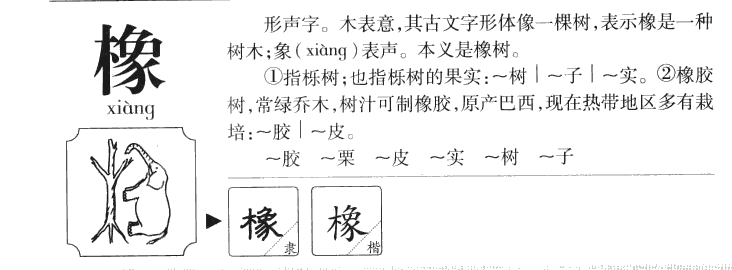 橡
xiàng
形声字。木表意,其古文字形体像一棵树,表示橡是一种
树木;象(xiàng)表声。本义是橡树。
①指栎树;也指栎树的果实:~树|~子|~实。②橡胶
树,常绿乔木,树汁可制橡胶,原产巴西,现在热带地区多有栽
培:~胶|~皮。
~胶 ~栗 ~皮 ~实 ~树 ~子
橡 隶
橡 楷